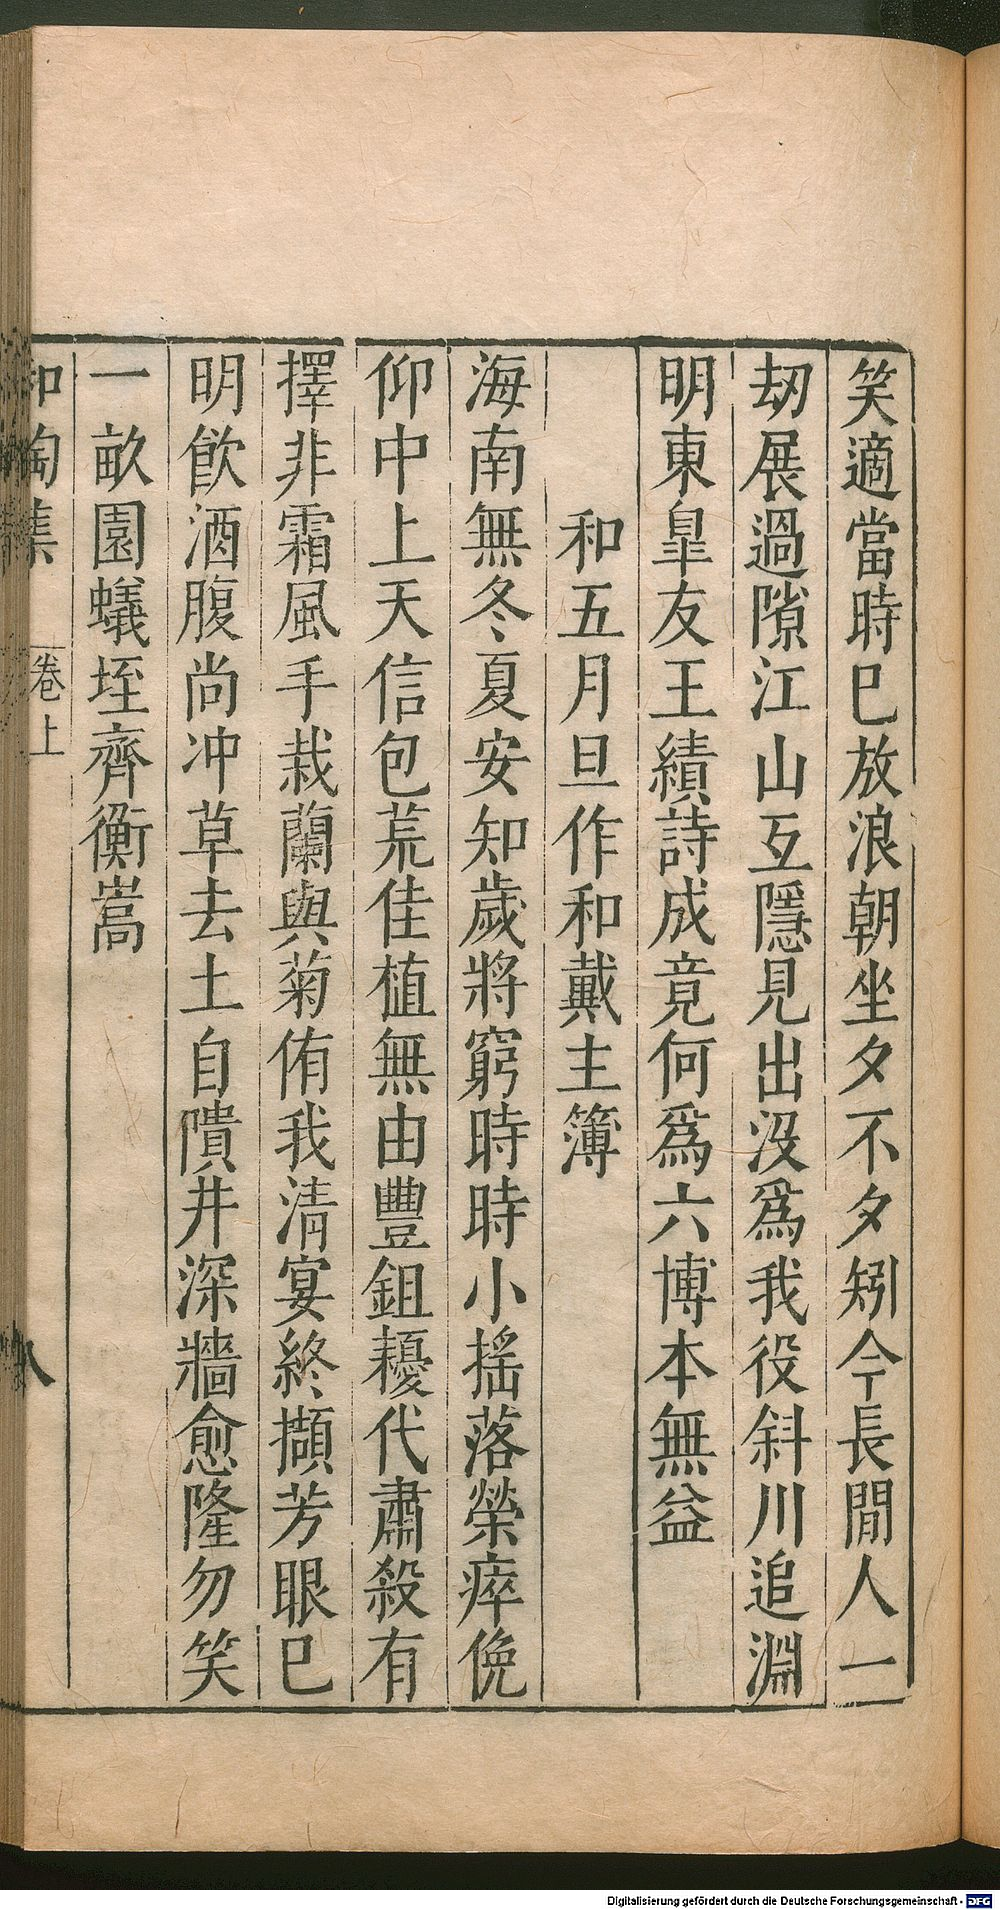 笑適當時已放浪朝坐夕不夕矧今長閒人一
刼展過隙江山互隱見出沒爲我役斜川追淵
明東臯友王績詩成竟何爲六博本無益
和五月旦作和戴主簿
海南無冬夏安知歲將窮時時小搖落榮瘁俛
仰中上天信包荒佳植無由豐鉏耰代肅殺有
擇非霜風手栽蘭與菊侑我清宴終擷芳眼已
明飲酒腹尚冲草去土自隤井深牆愈隆勿笑
一畝園蟻垤齊衡嵩
和陶集 卷上 八
Digitalisierung gefördert durch die Deutsche Forschungsgemeinschaft - DFG